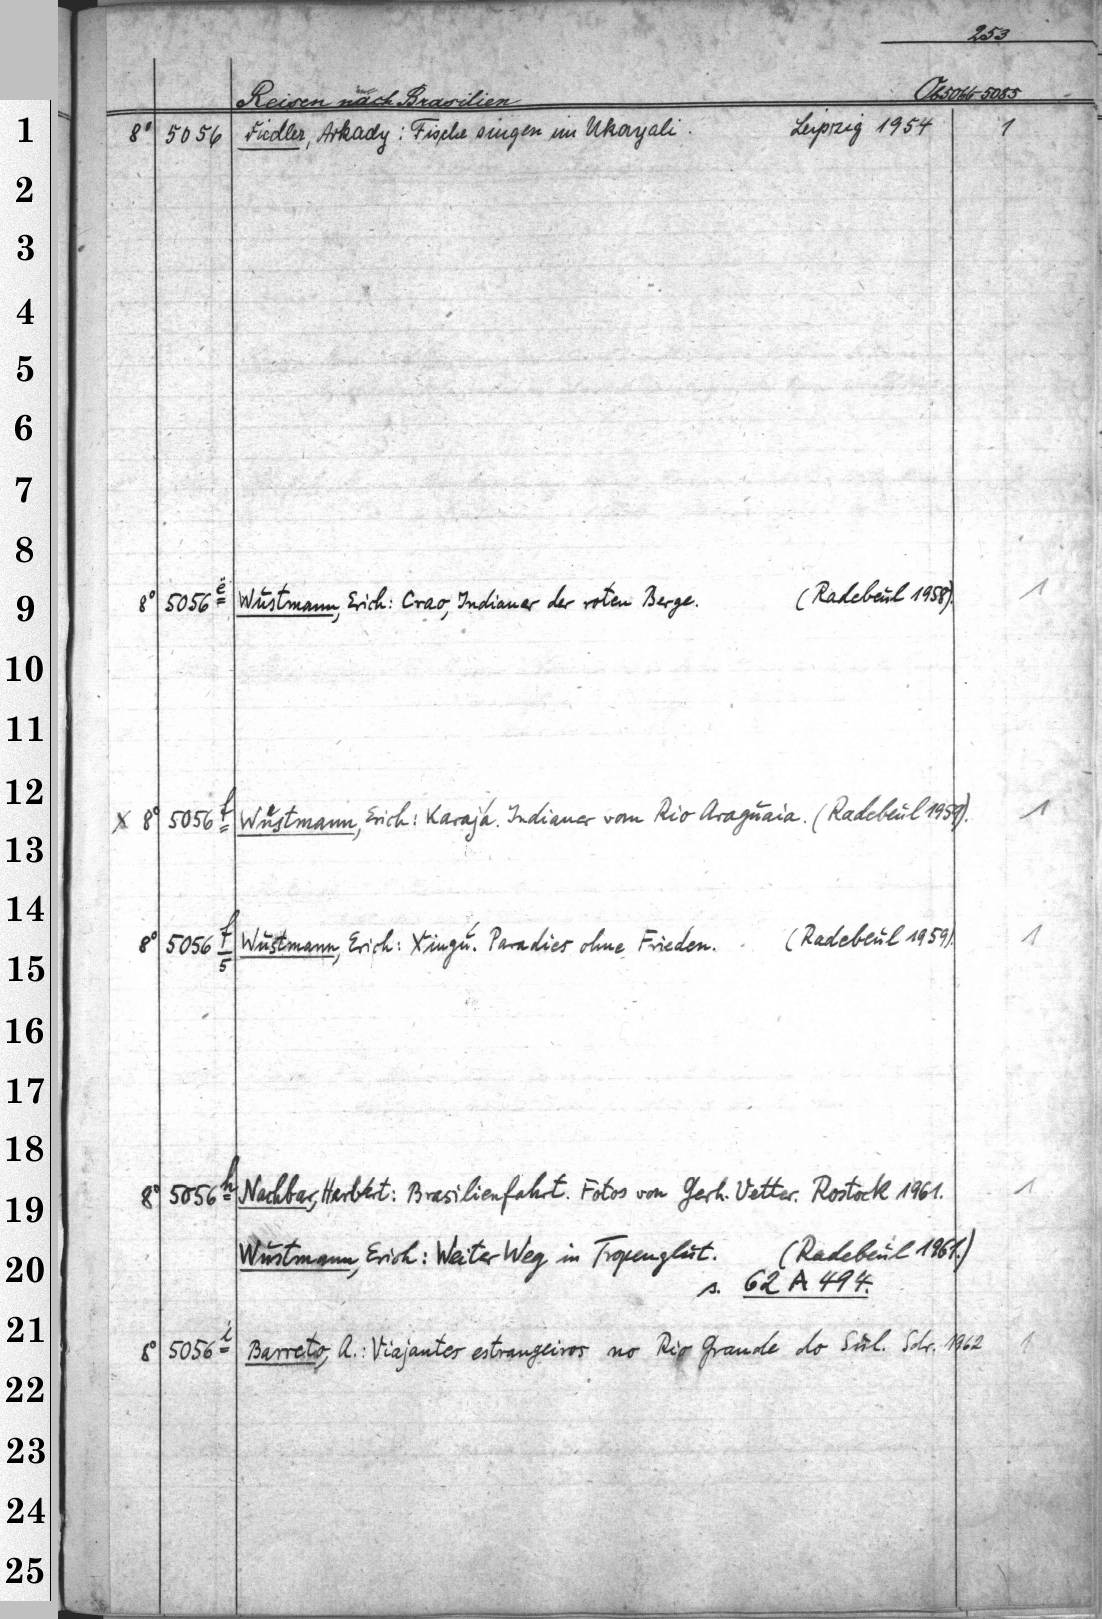 253
Reisen nach Brasilien
1 8° 5056 Fiedler, Arkady: Fische singen im Ukayali. Leipzig 1954 1
2
3
4
5
6
7
8
9 8° 5056 e Wustmann, Erich: Crao, Indianer der roten Berge. (Radebeul 1958). 1
10
11
12 x 8° 5056 f Wustmann, Erich: Karajá. Indianer vom Rio Araguaia. (Radebeul 1959). 1
13
14 8° 5056 f/5 Wustmann, Erich: Xingú. Paradies ohne Frieden. (Radebeul 1959). 1
15
16
17
18
19 8° 5056 h Nachbar, Herbert: Brasilienfahrt. Fotos von Gerh. Vetter. Rostock 1961. 1
20 Wustmann, Erich: Weiter Weg in Tropenglut. (Radebeul 1961.)
s. 62 A 494.
21 8° 5056 i Barreto, A.: Viajantes estrangeiros no Rio Grande do Sul. Sdr. 1962 1
22
23
24
25